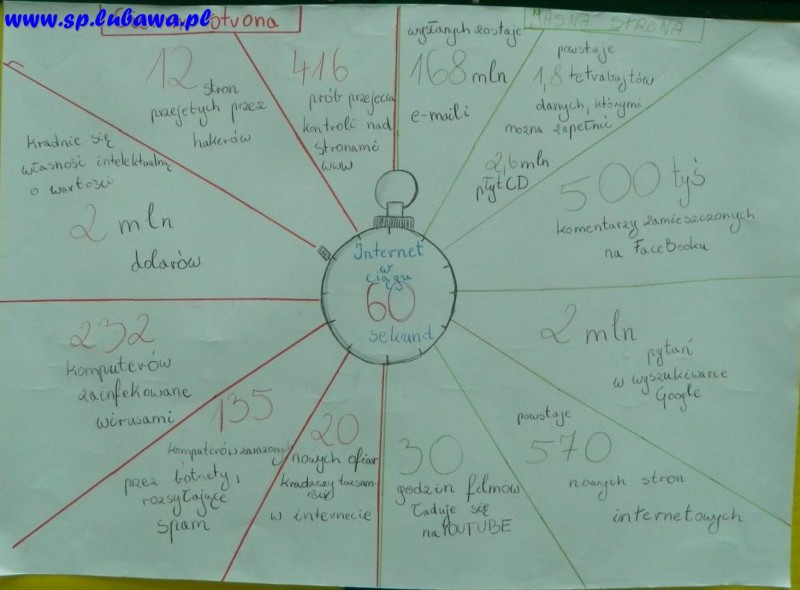 www.sp.lubawa.pl
strona
JASNA STRONA
12 stron
przejętych przez
hakerów
416
prób przejęcia
kontroli nad
stronami
www
wysłanych zostaje
168 mln
e-maili
powstaje
1,8 tetrabajtów
danych, którymi
można zapełnić
2,6 mln
płyt CD
500 tyś
komentarzy zamieszczonych
na FaceBooku
2 mln
pytań
w wyszukiwarce
Google
powstaje
570
nowych stron
internetowych
30
godzin filmów
ładuje się
na YOUTUBE
20
nowych ofiar
kradzieży tożsam
ości
w internecie
135
komputerów zarażonych
przez botnety,
rozsyłające
spam
232
komputerów
zainfekowane
wirusami
Kradnie się
własność intelektualną
o wartości
2 mln
dolarów
Internet
w
ciągu
60
sekund